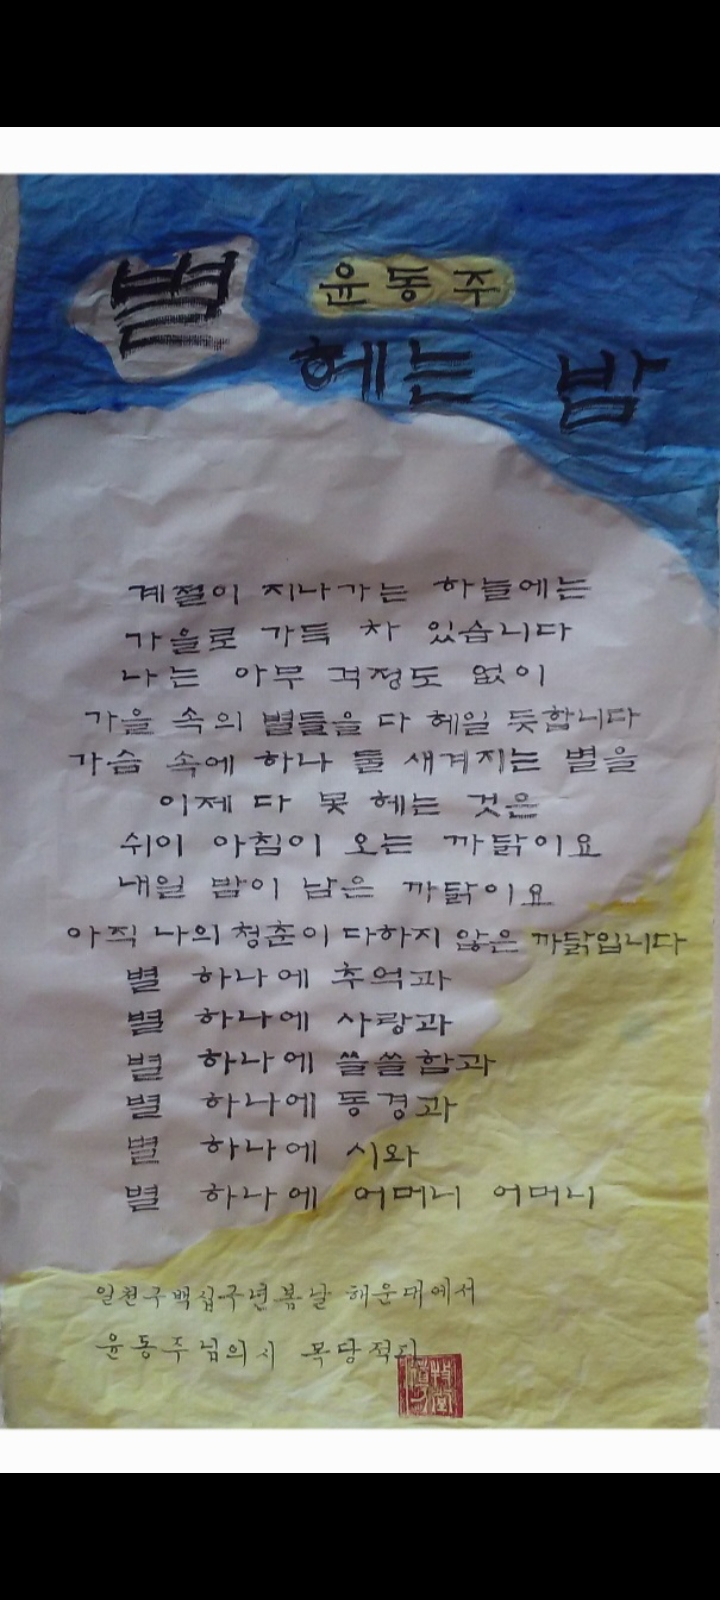 별
윤동주
헤는 밤
계절이 지나가는 하늘에는
가을로 가득 차 있습니다
나는 아무 걱정도 없이
가을 속의 별들을 다 헤일 듯합니다
가슴 속에 하나 둘 새겨지는 별을
이제 다 못 헤는 것은
쉬이 아침이 오는 까닭이요
내일 밤이 남은 까닭이요
아직 나의 청춘이 다하지 않은 까닭입니다
별 하나에 추억과
별 하나에 사랑과
별 하나에 쓸쓸함과
별 하나에 동경과
별 하나에 시와
별 하나에 어머니 어머니
일천구백십구년봄날 해운대에서
윤동주님의시 목당적다